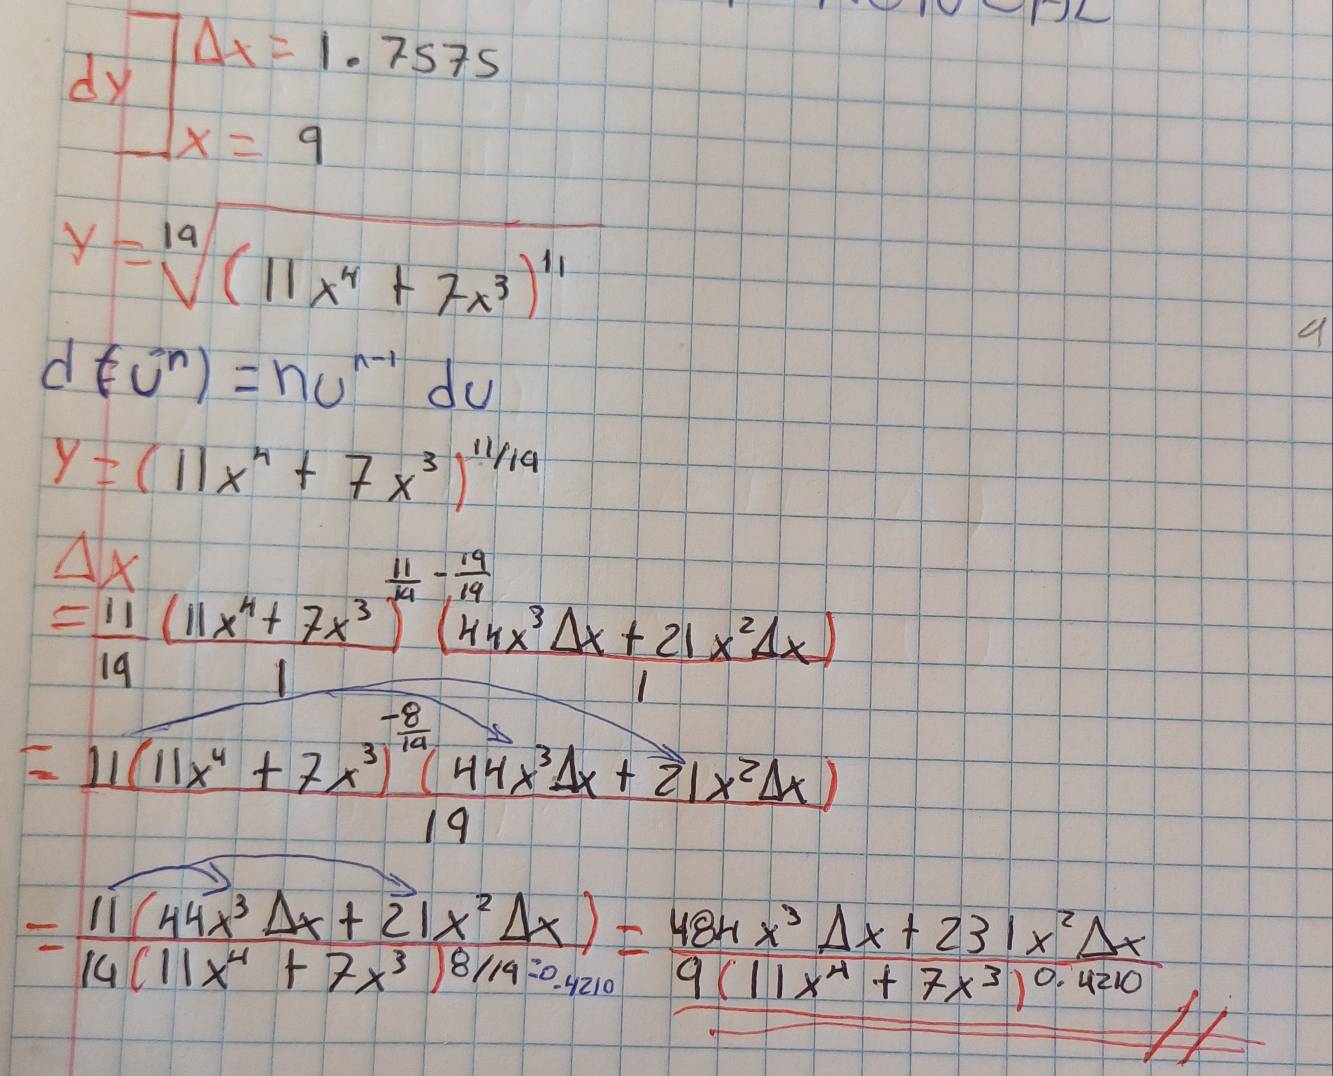 dy Δx = 1.7575
x = 9
y = ¹⁹√(11x⁴ + 7x³)¹¹
d(uⁿ) = nuⁿ⁻¹ du
y = (11x⁴ + 7x³)^11/19
Δx
= 11/19 (11x⁴ + 7x³)^(11/19 - 19/19)/1 (44x³Δx + 21x²Δx)/1
= 11(11x⁴ + 7x³)^(-8/19) (44x³Δx + 21x²Δx)/19
= 11(44x³Δx + 21x²Δx)/19(11x⁴ + 7x³)^8/19=0.4210 = 484x³Δx + 231x²Δx/9(11x⁴ + 7x³)^0.4210